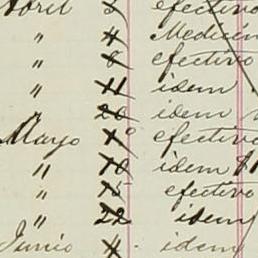 Abril 2 efectivo
" 4 Medicin
" 8 efectivo
" 11 idem
20 idem
Mayo 1º efectivo
" 10 idem $1
" 15 efectivo
" 22 idem
Junio 4 idem